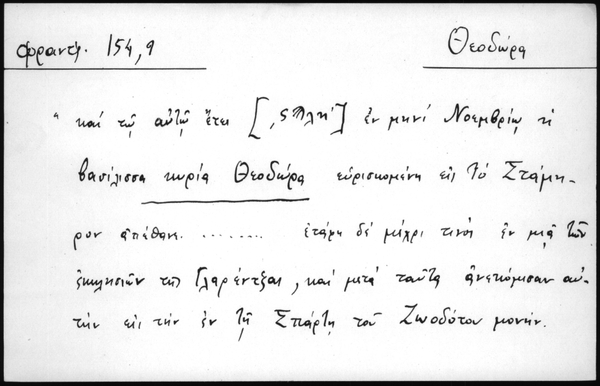 Φραντζ. 154,9
Θεοδώρα
" καί τῷ αὐτῷ ἔτει [,ςϠλη'] ἐν μηνί Νοεμβρίῳ ἡ
βασίλισσα κυρία Θεοδώρα εὑρισκομένη εἰς τό Στάμη-
ρον ἀπέθανε ........ ἐτάφη δέ μέχρι τινός ἐν μιᾷ τῶν
ἐκκλησιῶν τῆς Γλαρέντζας, καί μετά ταῦτα ἀνεκόμισαν αὐ-
τήν εἰς τήν ἐν τῇ Σπάρτῃ τοῦ Ζωοδότου μονήν.